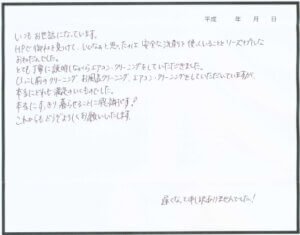 平成　年　月　日
いつもお世話になっています。
HPで物件を見つけて、いいなぁと思ったのは安全な洗剤を使っていることとリーズナブルな
お値だんでした。
とても丁寧に説明しながらエアコンクリーニングをしていただきました。
ひっこし前のクリーニング、お風呂クリーニング、エアコンクリーニングをしていただいていますが、
本当にどれも満足のいくものでした。
本当にすっきり暮らせることに感謝です。
これからもどうぞよろしくお願いいたします
遅くなって申し訳ありませんでした！